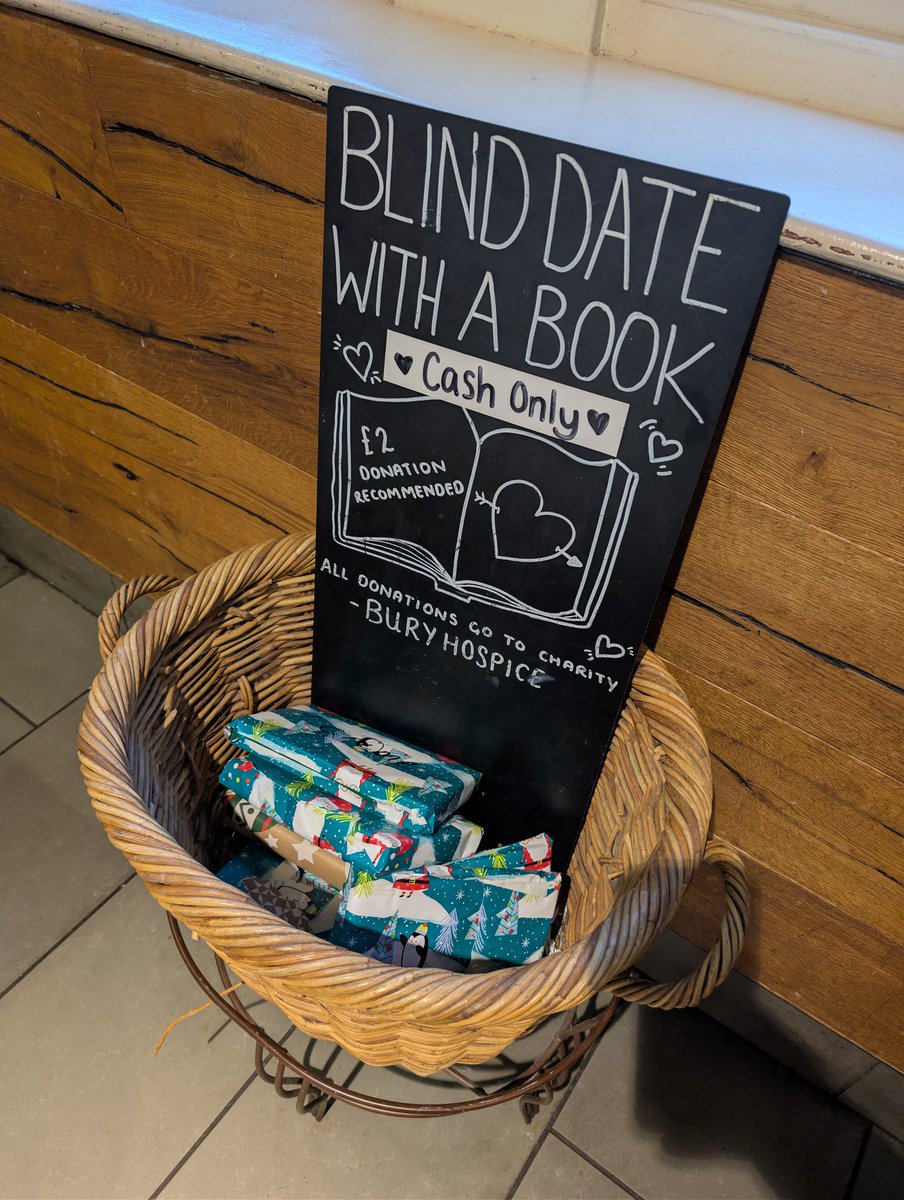 BLIND DATE
WITH A BOOK
Cash Only
£2
DONATION
RECOMMENDED
ALL DONATIONS GO TO CHARITY
-BURY HOSPICE